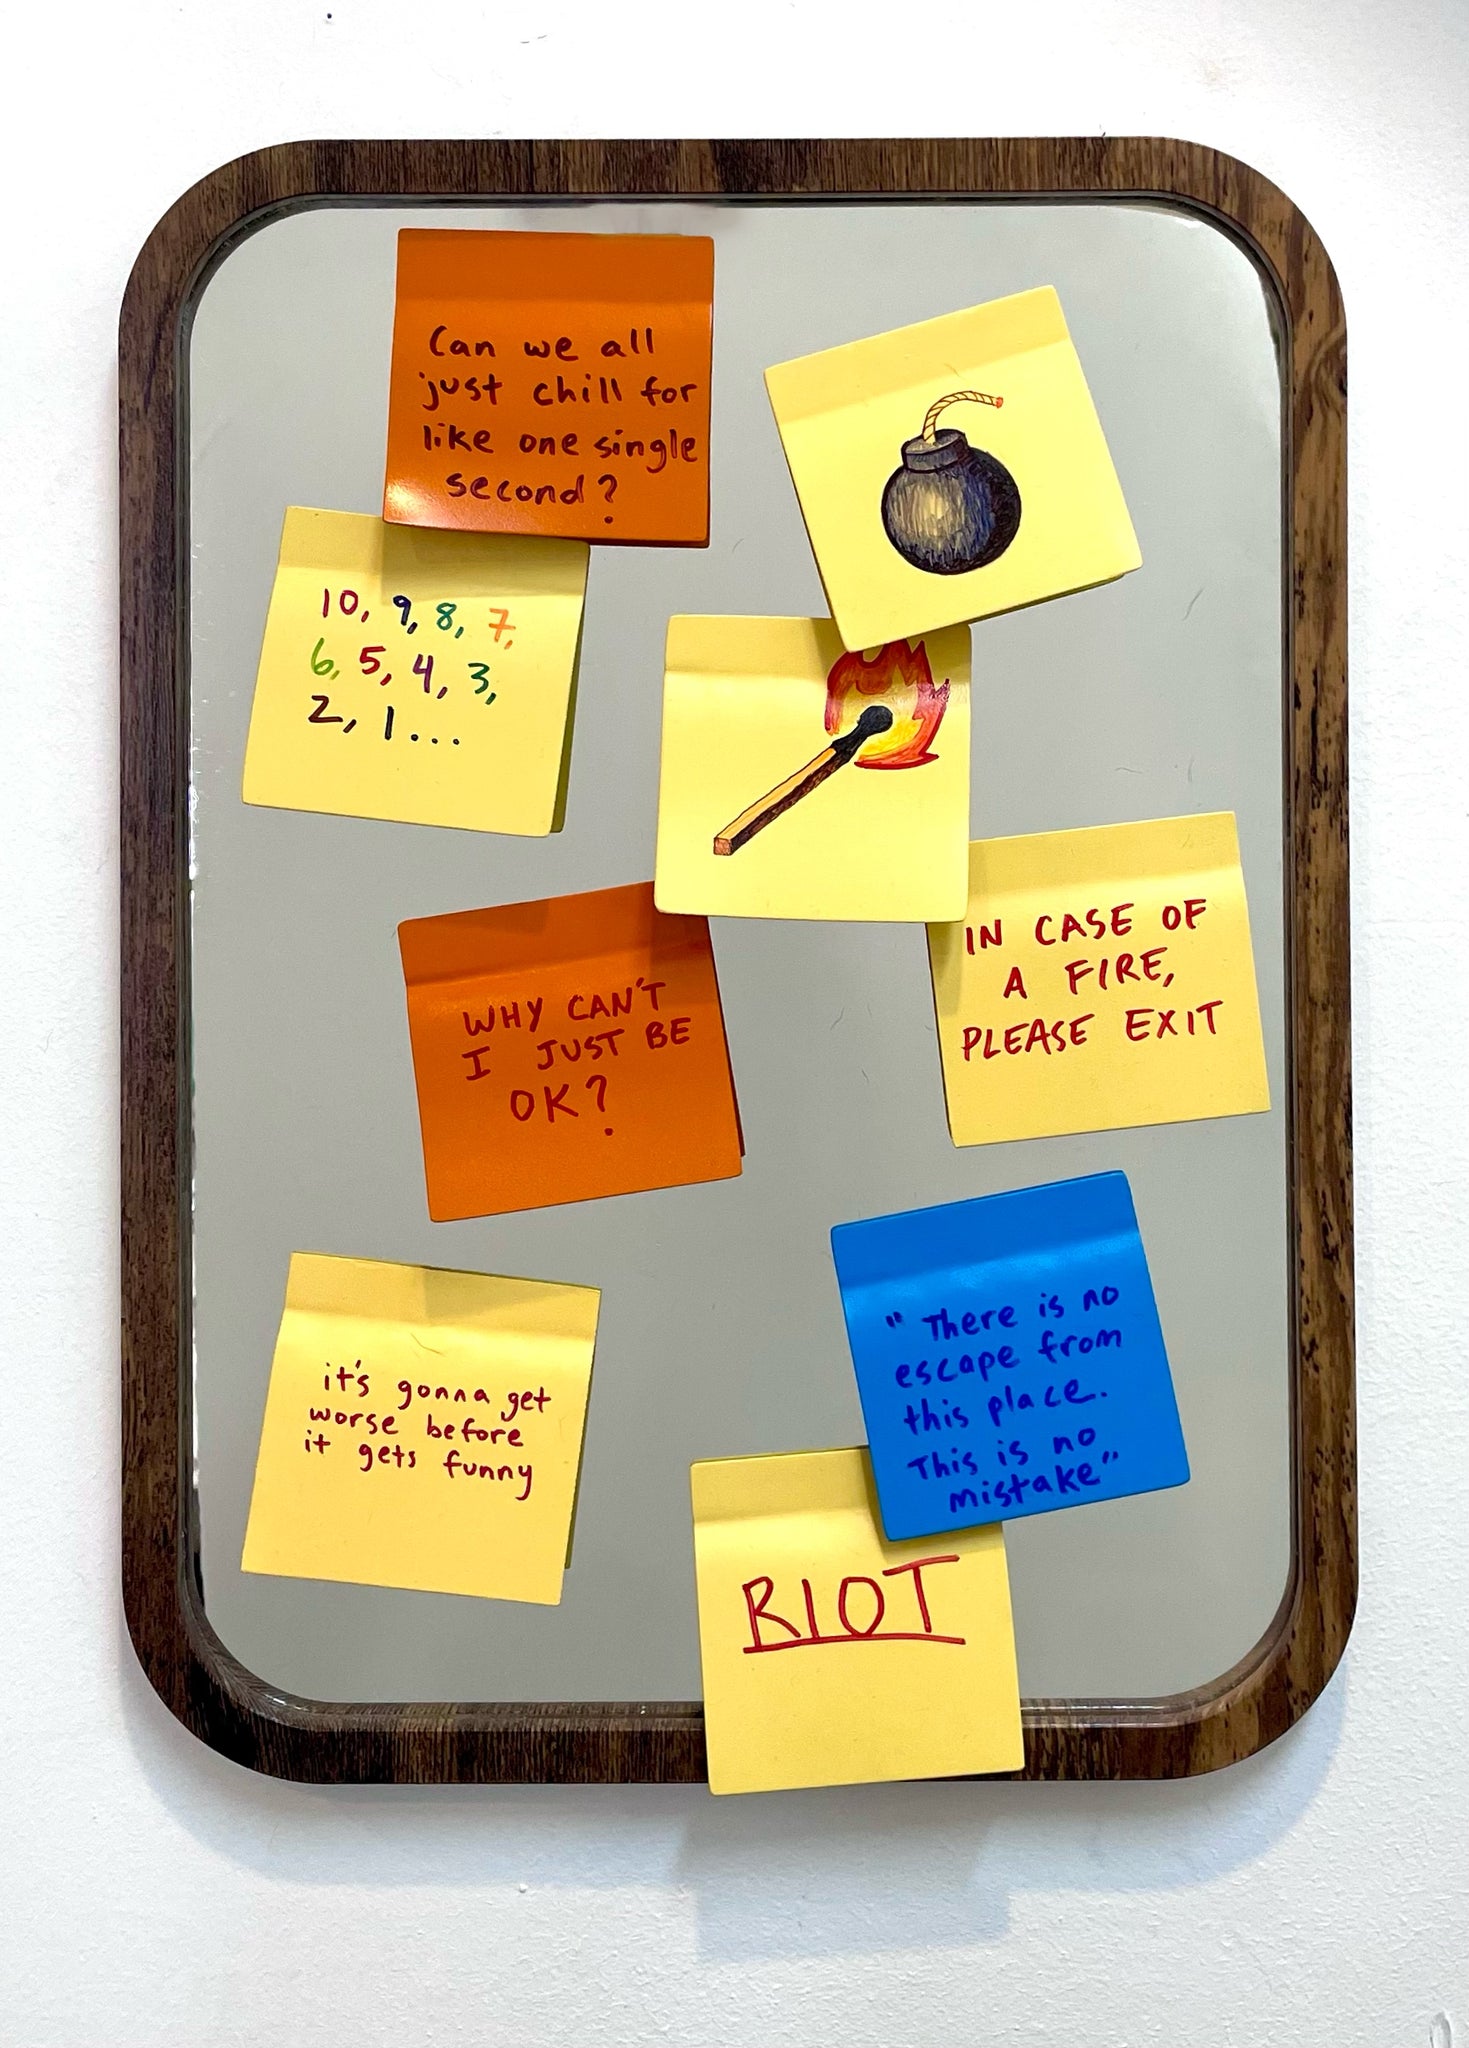 Can we all
just chill for
like one single
second?
10, 9, 8, 7,
6, 5, 4, 3,
2, 1...
IN CASE OF
A FIRE,
PLEASE EXIT
WHY CAN'T
I JUST BE
OK?
"There is no
escape from
this place.
This is no
mistake"
it's gonna get
worse before
it gets funny
RIOT